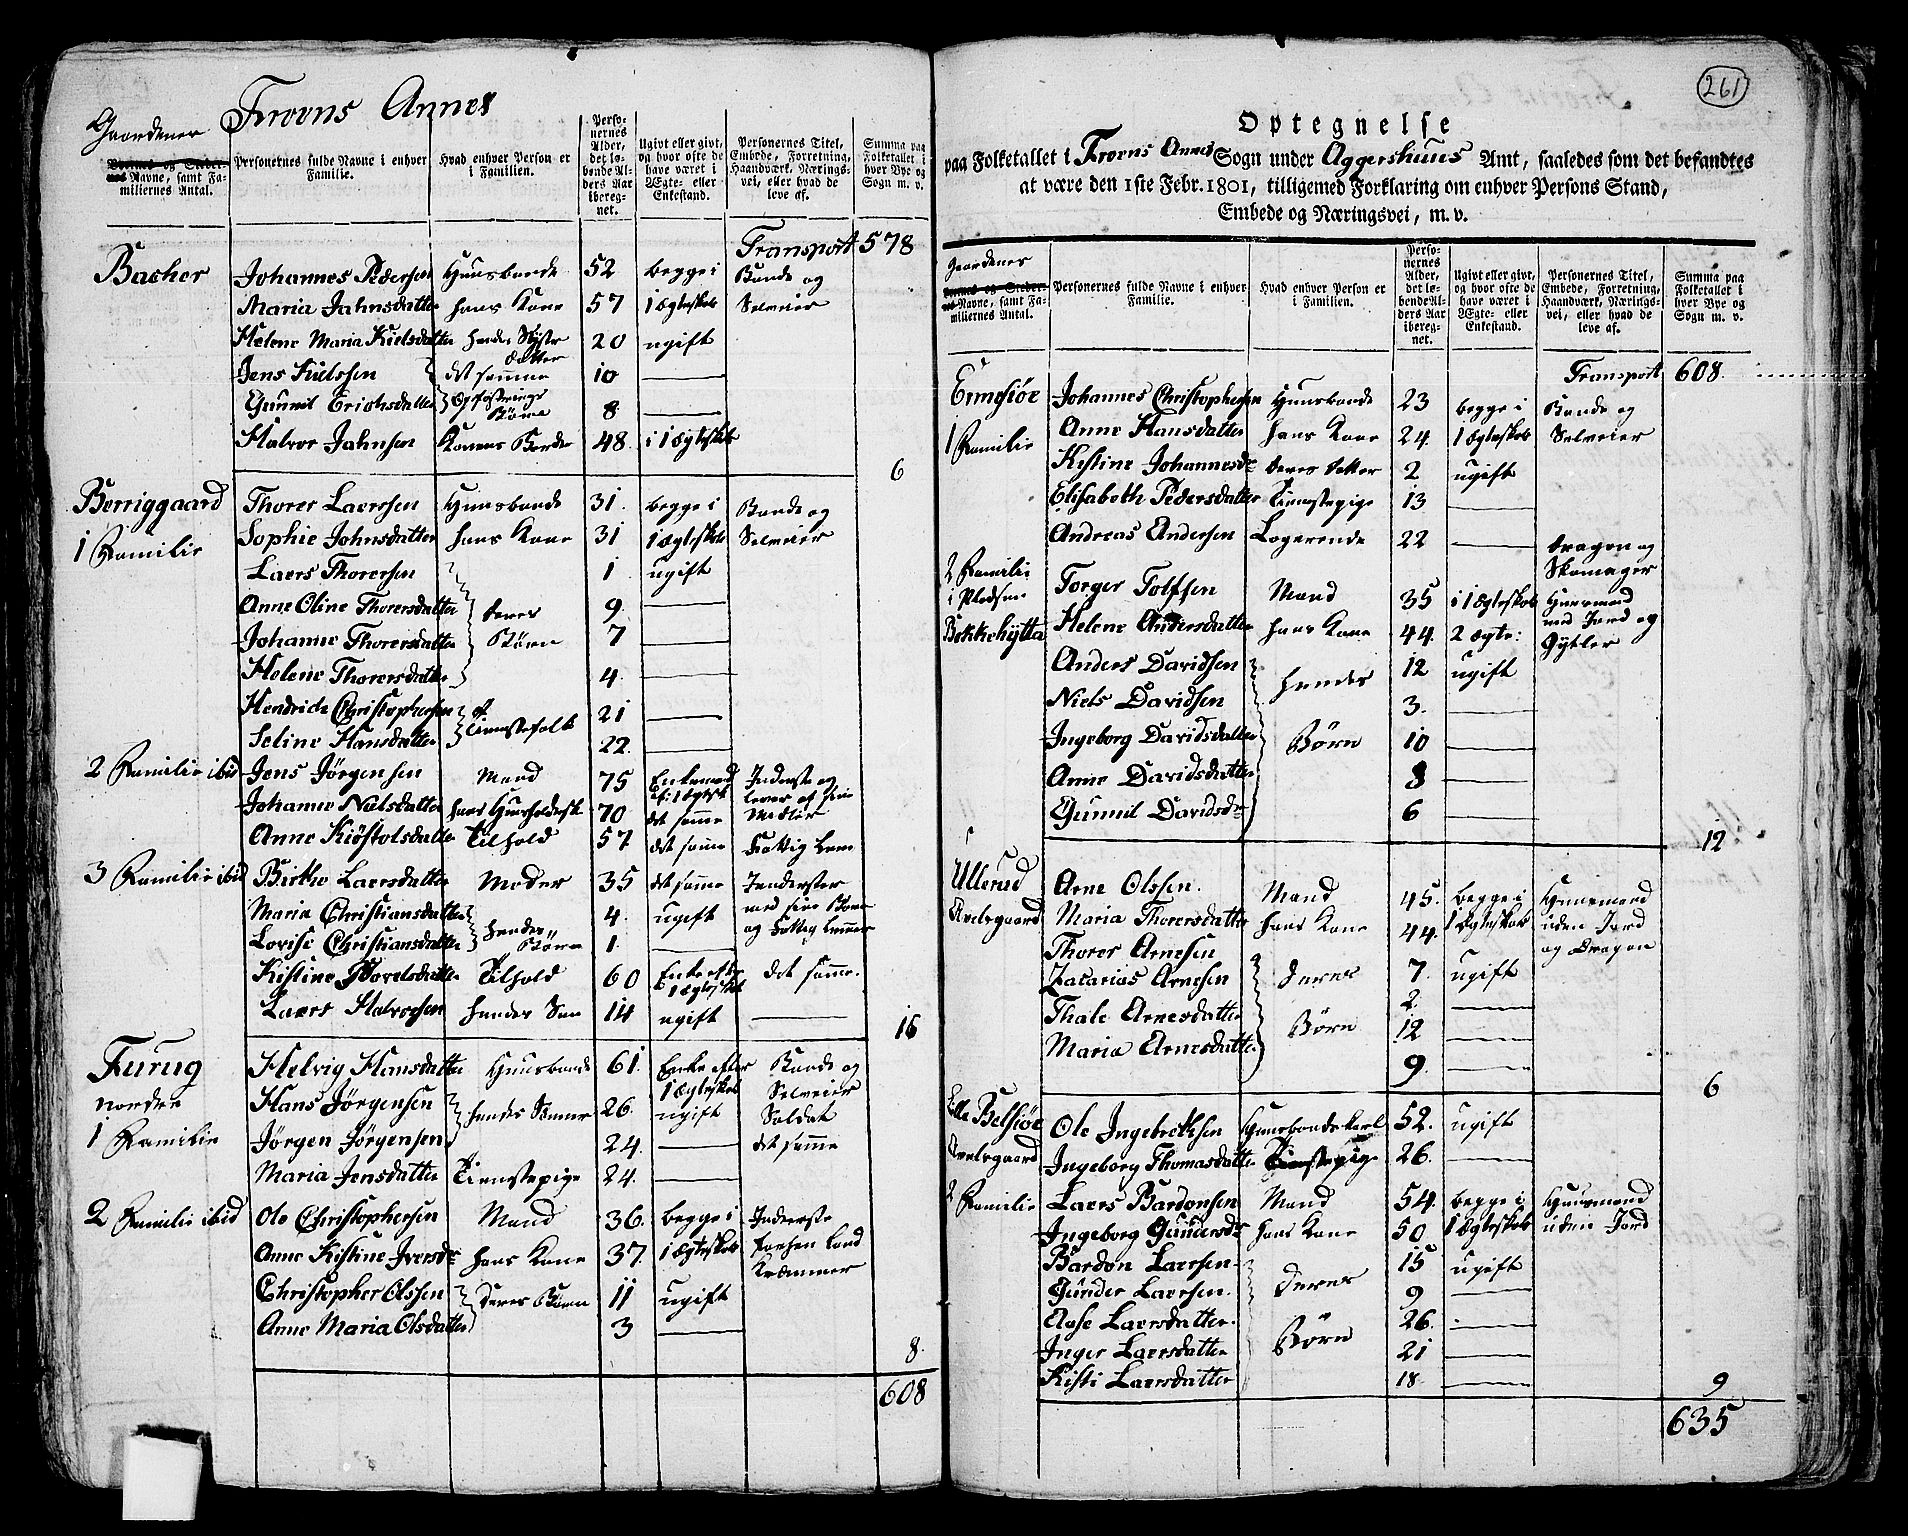 Froens Annex
Gaardenes
Byernes og Stedernes Navne, samt Familiernes Antal. | Personernes fulde Navne i enhver Familie. | Hvad enhver Person er i Familien. | Personernes Alder, det løbende Alders Aar iberegnet. | Ugivt eller givt, og hvor ofte de have været i Ægte- eller Enkestand. | Personernes Titel, Embede, Forretning, Haandværk, Næringsvei, eller hvad de leve af. | Summa paa Folketallet i hver Bye og Sogn m. v.
Transport 578
Bacher Johannes Pedersen Huusbonde 52 begge i Bonde og
Maria Jahnsdatter hans Kone 57 1 Ægteskab Selveier
Helene Maria Kielsdatter hendes Syster datter 20 ugift
Jens Kielssen det samme 10 —
Gunnil Erichsdatter Opfostrings Børn 8 —
Halvor Jahnsen Konens Broder 48 i 1 Ægteskab
6
Berriggaard Thorer Laersen Huusbonde 31 begge i Bonde og
1 Familie Sophie Johnsdatter hans Kone 31 1 Ægteskab Selveier
Laers Thorersen 1 ugift
Anne Oline Thorersdatter deres 9 —
Johanne Thorersdatter Børn 7 —
Helene Thorersdatter 4 —
Hendrich Christophersen 21 —
Seline Hansdatter Tienstefolk 22 —
2 Familie ibid Jens Jørgensen Mand 75 Enkemand Inderste og
Johanne Nielsdatter hans Huusholderske 70 det samme lever af sine Midler
Anne Kiøstolsdatter Tilhold 57 det samme Fattig Lem
3 Familie ibid Birthe Laersdatter Moder 35 det samme Inderster
Maria Christiansdatter hendes 4 ugift med sine Børn
Lovise Christiansdatter Børn 1 — og Fattig Lemmer
Kistine Povelsdatter Tilhold 60 Enke efter 1 Ægteskab det samme
Laers Halvorsen hendes Søn 14 ugift —
16
Furug Helvig Hansdatter Huusbonde 61 Enke efter 1 Ægteskab Bonde og Selveier
nordre Hans Jørgensen hendes Sønner 26 ugift Soldat
1 Familie Jørgen Jørgensen 24 — det samme
Maria Jensdatter Tienstepige 24 —
2 Familie ibid Ole Christophersen Mand 36 begge i Inderste
Anne Kistine Iversdr hans Kone 37 1 Ægteskab forhen Land Kræmmer
Christopher Olssen deres Børn 11 ugift
Anne Maria Olsdatter 3 —
8
608
261
Optegnelse
paa Folketallet i Froens Annex Sogn under Aggershuus Amt, saaledes som det befandtes
at være den 1ste Febr. 1801, tilligemed Forklaring om enhver Persons Stand,
Embede og Næringsvei, m. v.
Gaardenes
Byernes og Stedernes Navne, samt Familiernes Antal. | Personernes fulde Navne i enhver Familie. | Hvad enhver Person er i Familien. | Personernes Alder, det løbende Alders Aar iberegnet. | Ugivt eller givt, og hvor ofte de have været i Ægte- eller Enkestand. | Personernes Titel, Embede, Forretning, Haandværk, Næringsvei, eller hvad de leve af. | Summa paa Folketallet i hver Bye og Sogn m. v.
Transport 608
Johannes Christophersen Huusbonde 23 begge i Bonde og
1 Familie Anne Hansdatter hans Kone 24 1 Ægteskab Selveier
Kistine Johannesdr deres datter 2 ugift
Elisabeth Pedersdatter Tienstepige 13 —
Andreas Andersen Logerende 22 — Dragon og Skomager
2 Familie i Pladsen Torger Tolfsen Mand 35 i 1 Ægteskab Huusmand med Jord og
Bekkehytta Helene Andersdatter hans Kone 44 2 Ægte: Gytler
Anders Davidsen hendes 12 ugift
Niels Davidsen 3 —
Ingeborg Davidsdatter Børn 10 —
Anne Davidsdatter 8 —
Gunnil Davidsdr 6 —
12
Ullerud Arne Olssen Mand 45 begge i Huusmand
Maria Thorersdatter hans Kone 44 1 Ægteskab uden Jord
Thorer Arnesen deres 7 ugift og Dragon
Zacarias Arnesen 2 —
Thale Arnesdatter Børn 12 —
Maria Arnesdatter 9 —
6
Lille Belsiøe Ole Ingebretksen Huusbondskarl 52 ugift
Ingeborg Thomasdatter Tienstepige 26 —
2 Familie Laers Bardonsen Mand 54 begge i Huusmand
Ingeborg Gundersdr hans Kone 50 1 Ægteskab uden Jord
Bardon Laersen deres 15 ugift
Gunder Laersen 9 —
Aase Laersdatter Børn 26 —
Inger Laersdatter 21 —
Kisti Laersdatter 18 —
9
635